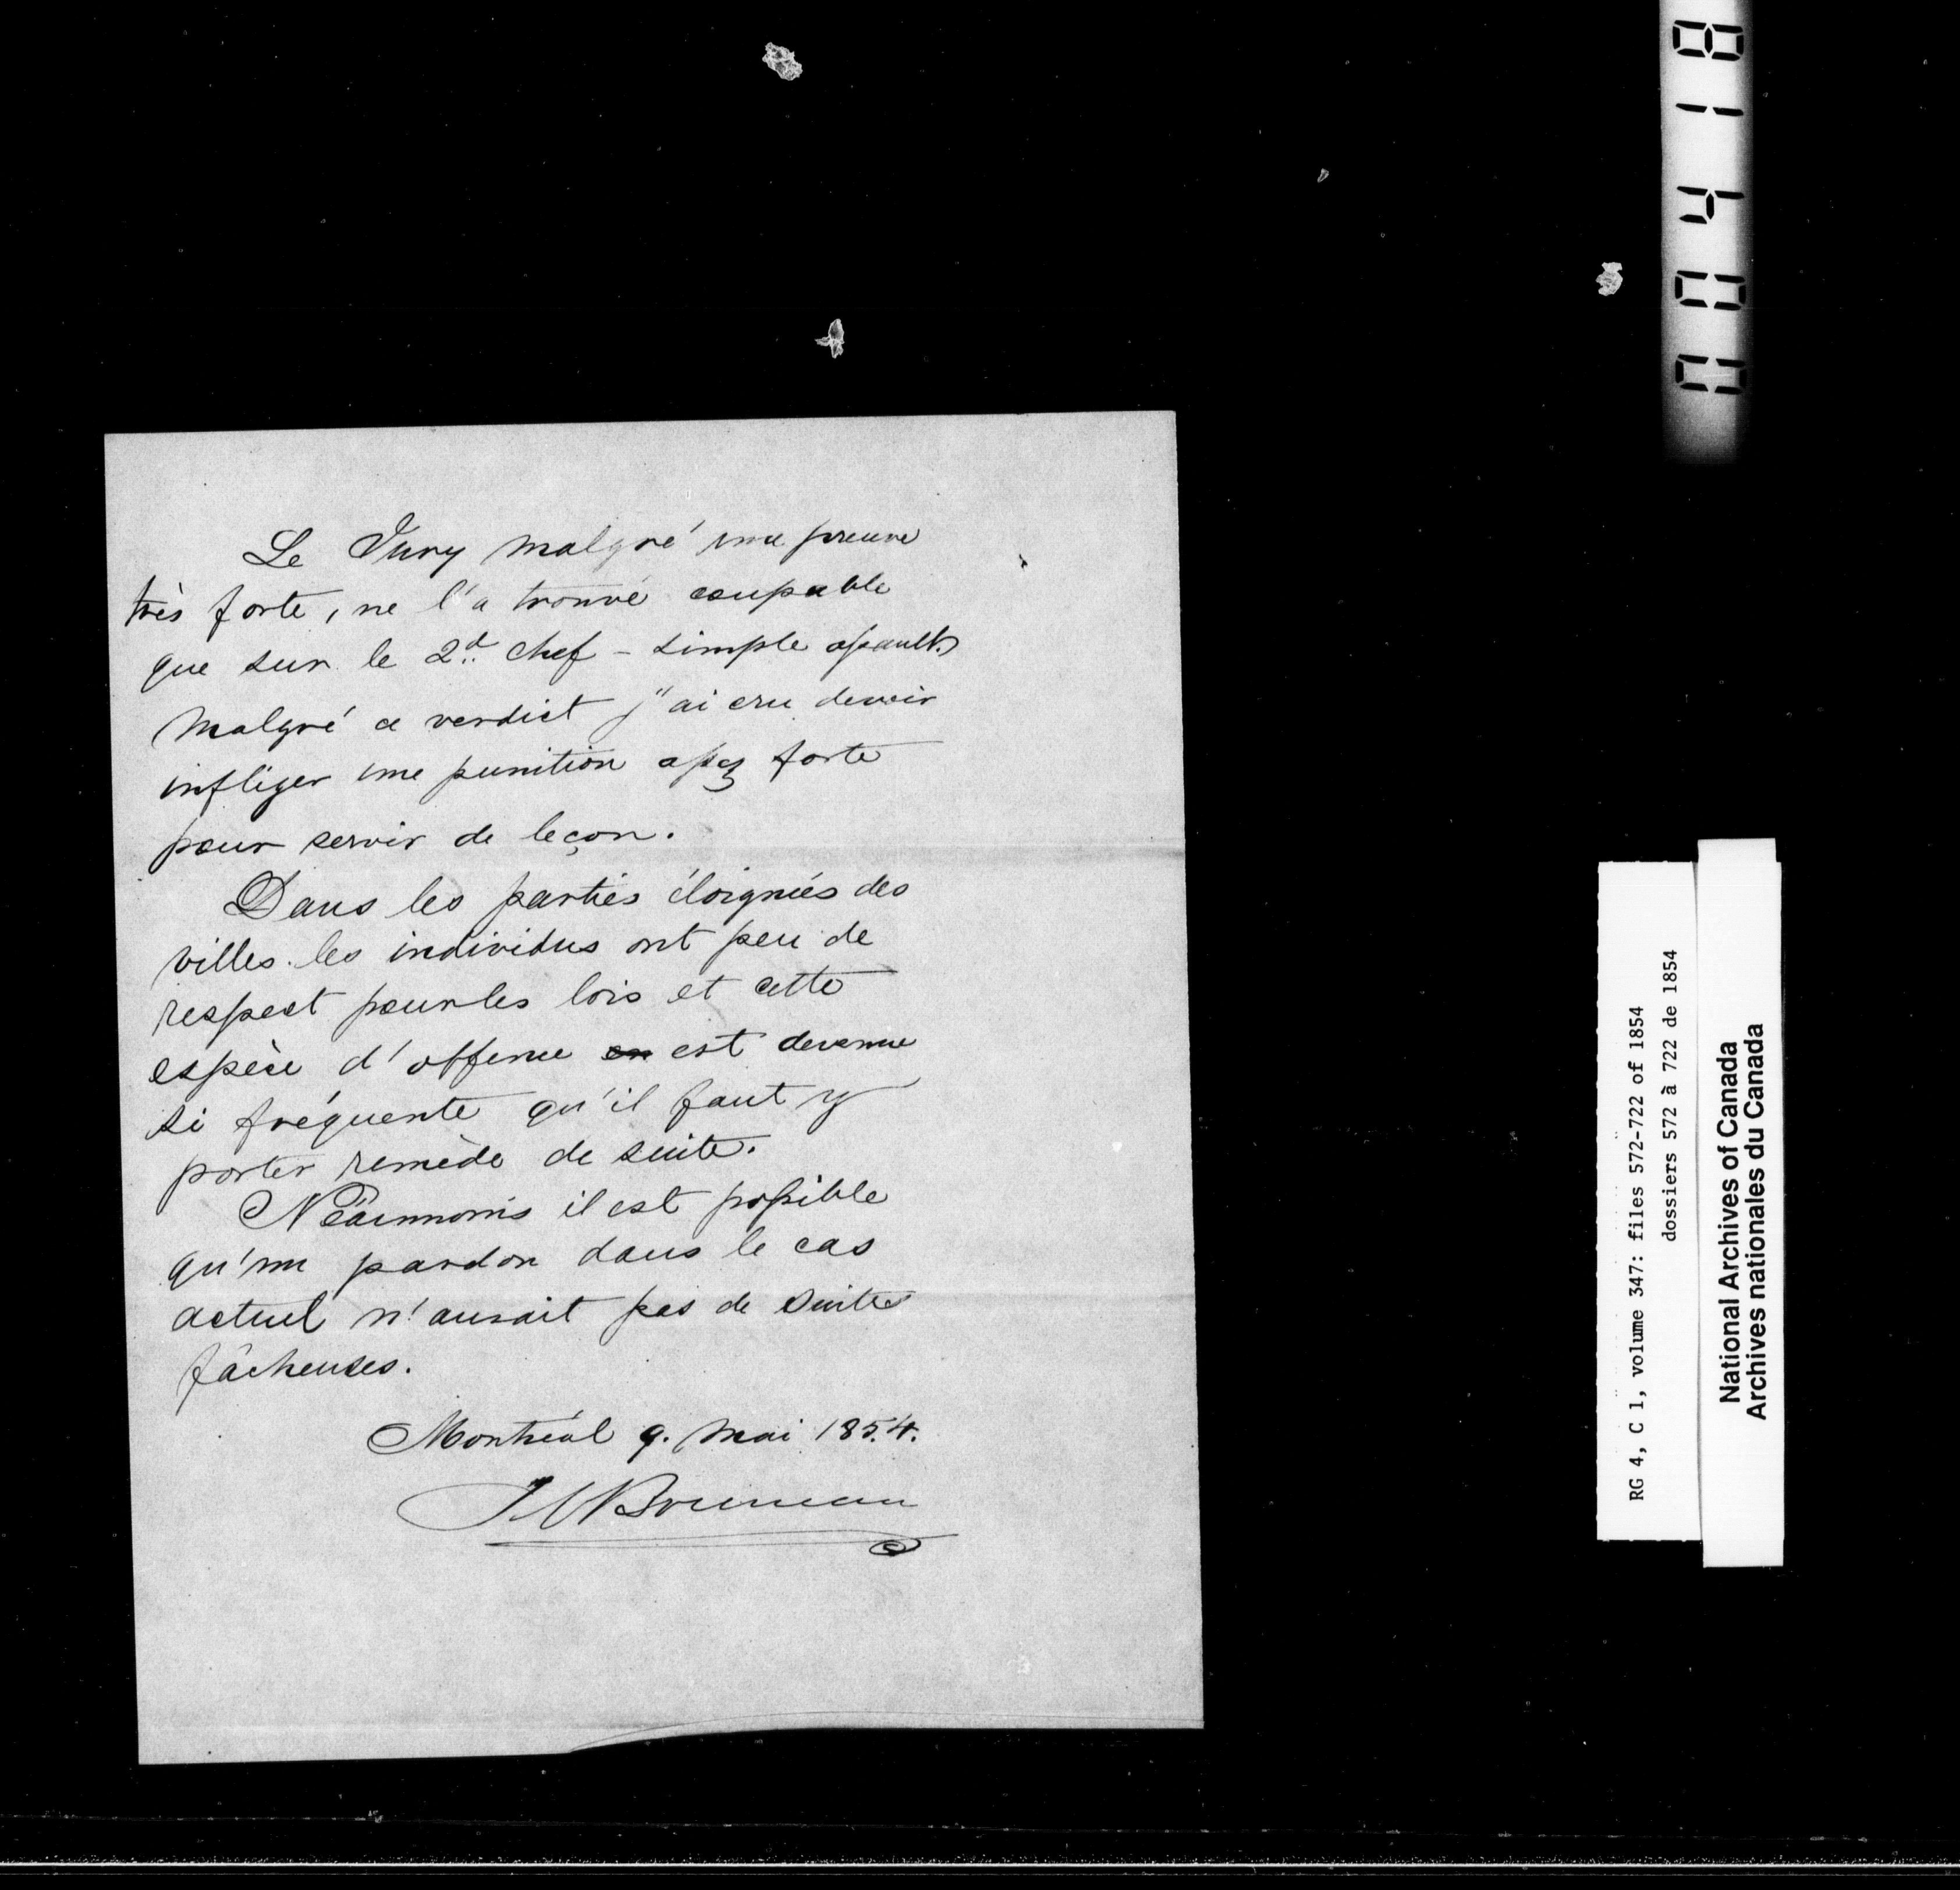 Le Jury malgré une preuve
très forte, ne l'a trouvé coupable
que sur le 2d. chef - simple assault.
Malgré ce verdict j'ai cru devoir
infliger une punition assez forte
pour servir de leçon.
Dans les parties éloignées des
villes les individus ont peu de
respect pour les lois et cette
espèce d'offense en est devenue
si fréquente qu'il faut y
porter remède de suite.
Néanmoins il est possible
qu'un pardon dans le cas
actuel n'aurait pas de suites
fâcheuses.
Montréal 9. Mai 1854.
Bruneau
RG 4, C 1, volume 347: files 572-722 of 1854
dossiers 572 à 722 de 1854
National Archives of Canada
Archives nationales du Canada